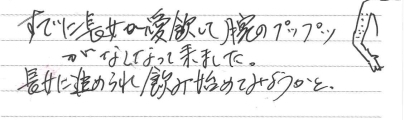 すでに長女が愛飲して腕のプップツ
がなくなって来ました。
長女に進められ飲み始めてみようかと。